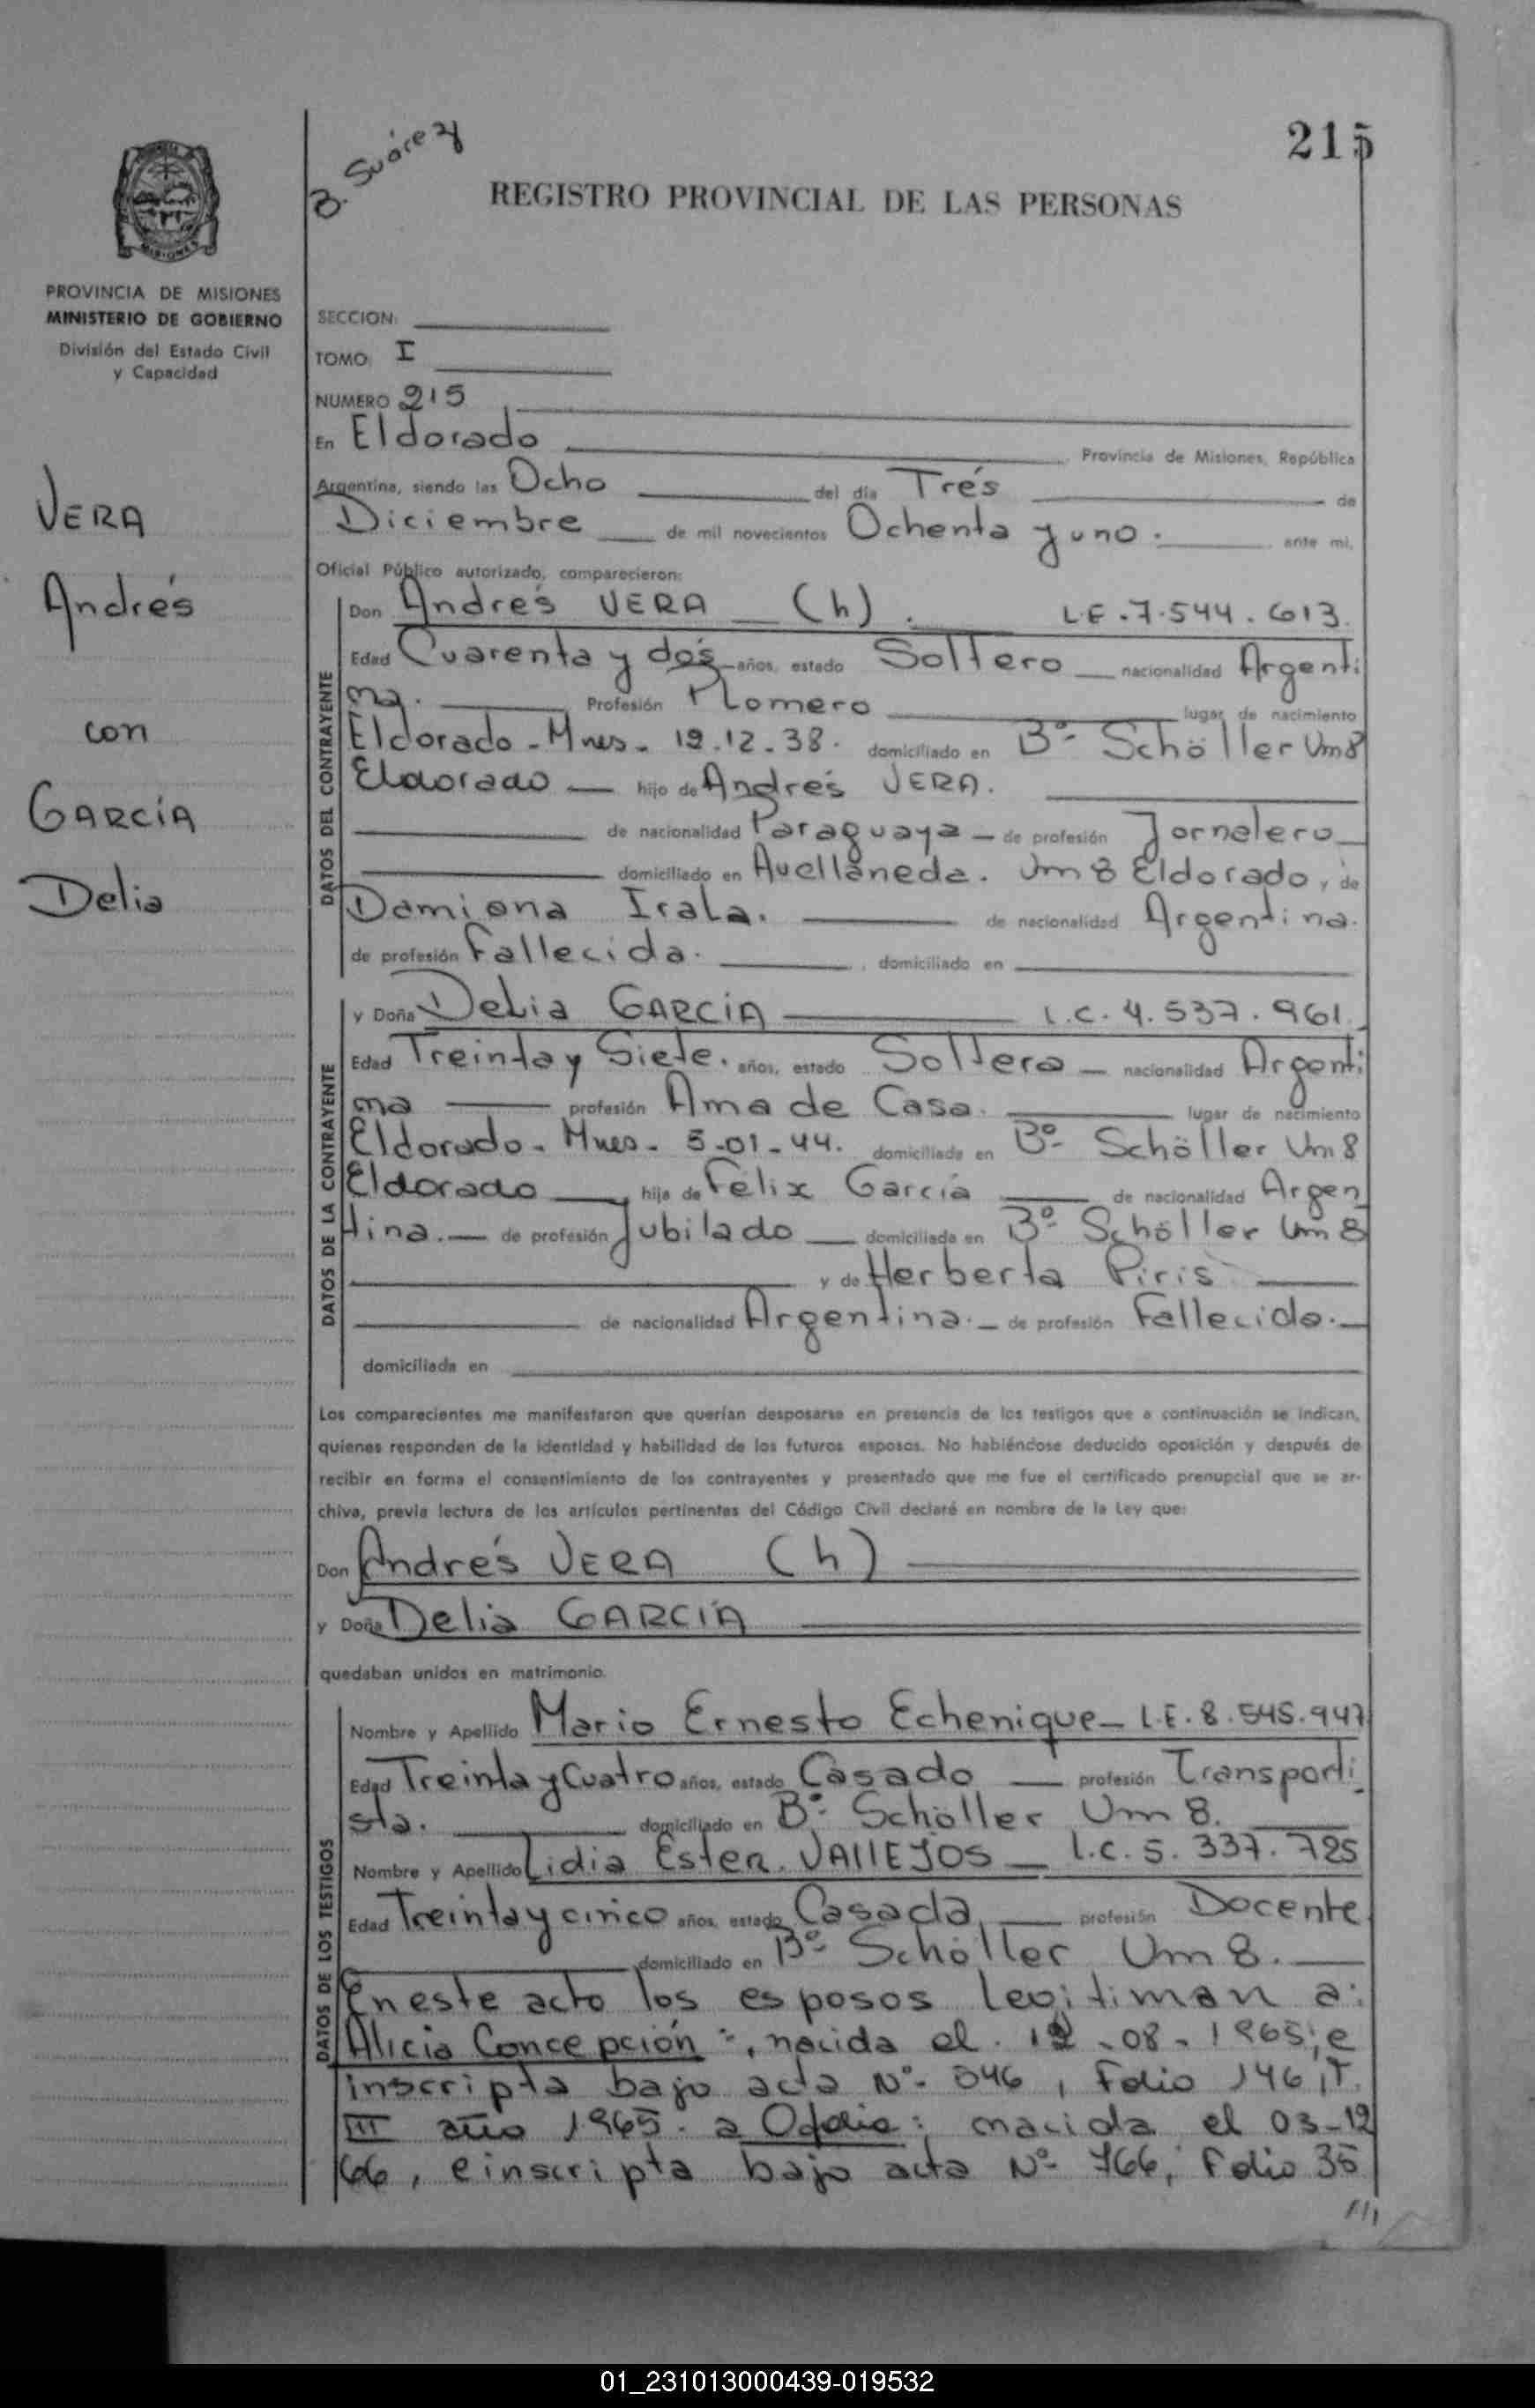 215
B. Suárez
REGISTRO PROVINCIAL DE LAS PERSONAS
MISIONES
PROVINCIA DE MISIONES
MINISTERIO DE GOBIERNO
División del Estado Civil
y Capacidad
VERA
Andrés
con
GARCÍA
Delia
SECCION:
TOMO: I
NUMERO 215
En Eldorado Provincia de Misiones, República
Argentina, siendo las Ocho del día Trés de
Diciembre de mil novecientos Ochenta y uno. ante mi,
Oficial Público autorizado, comparecieron:
DATOS DEL CONTRAYENTE
Don Andrés VERA (h). L.E. 7.544.613.
Edad Cuarenta y dos años, estado Soltero nacionalidad Argenti
na. Profesión Plomero lugar de nacimiento
Eldorado - Mnes. 19.12.38. domiciliado en Bº Schöller Km 8
Eldorado hijo de Andrés VERA.
de nacionalidad Paraguaya de profesión Jornalero
domiciliado en Avellaneda. Km 8 Eldorado, y de
Damiana Irala. de nacionalidad Argentina.
de profesión Fallecida. domiciliado en
DATOS DE LA CONTRAYENTE
y Doña Delia GARCÍA L.C. 4.537.961.
Edad Treinta y Siete. años, estado Soltera nacionalidad Argenti
na profesión Ama de Casa. lugar de nacimiento
Eldorado - Mnes - 5-01-44. domiciliada en Bº Schöller Km 8
Eldorado hija de Félix García de nacionalidad Argen
tina. de profesión Jubilado domiciliado en Bº Schöller Km 8
y de Herberta Piris
de nacionalidad Argentina. de profesión Fallecida.
domiciliada en
Los comparecientes me manifestaron que querían desposarse en presencia de los testigos que a continuación se indican,
quienes responden de la identidad y habilidad de los futuros esposos. No habiéndose deducido oposición y después de
recibir en forma el consentimiento de los contrayentes y presentado que me fue el certificado prenupcial que se ar-
chiva, previa lectura de los artículos pertinentes del Código Civil declaré en nombre de la Ley que:
Don Andrés VERA (h)
y Doña Delia GARCÍA
quedaban unidos en matrimonio.
DATOS DE LOS TESTIGOS
Nombre y Apellido Mario Ernesto Echenique - L.E. 8.545.947
Edad Treinta y Cuatro años, estado Casado profesión Transporti
sta. domiciliado en Bº Schöller Km 8.
Nombre y Apellido Lidia Ester VALLEJOS L.C. 5.337.725
Edad Treinta y cinco años, estado Casada, profesión Docente
domiciliado en Bº Schöller Km 8.
En este acto los esposos legitiman a:
Alicia Concepción:, nacida el 12-08-1965; e
inscripta bajo acta Nº 546, Folio 146, T.
III año 1965. a Ofelia: nacida el 03-12
66, e inscripta bajo acta Nº 766, Folio 35
///
01_231013000439-019532